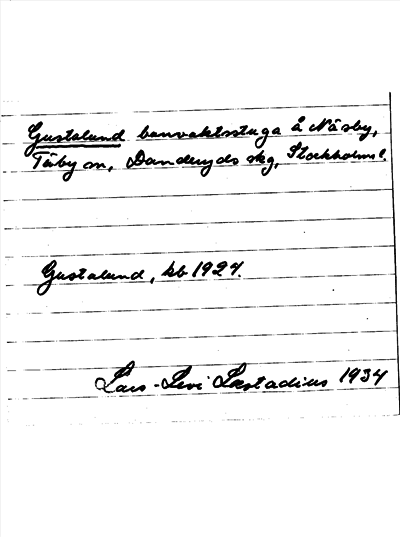 Gustalund banvaktsstuga å Näsby,
Täby sn, Danderyds skg, Stockholms l.
Gustalund, kb 1927.
Lars-Levi Læstadius 1934